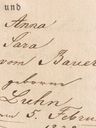 und
Anna
Sara
vom Bauer
geborne
Luhn
5. Febru